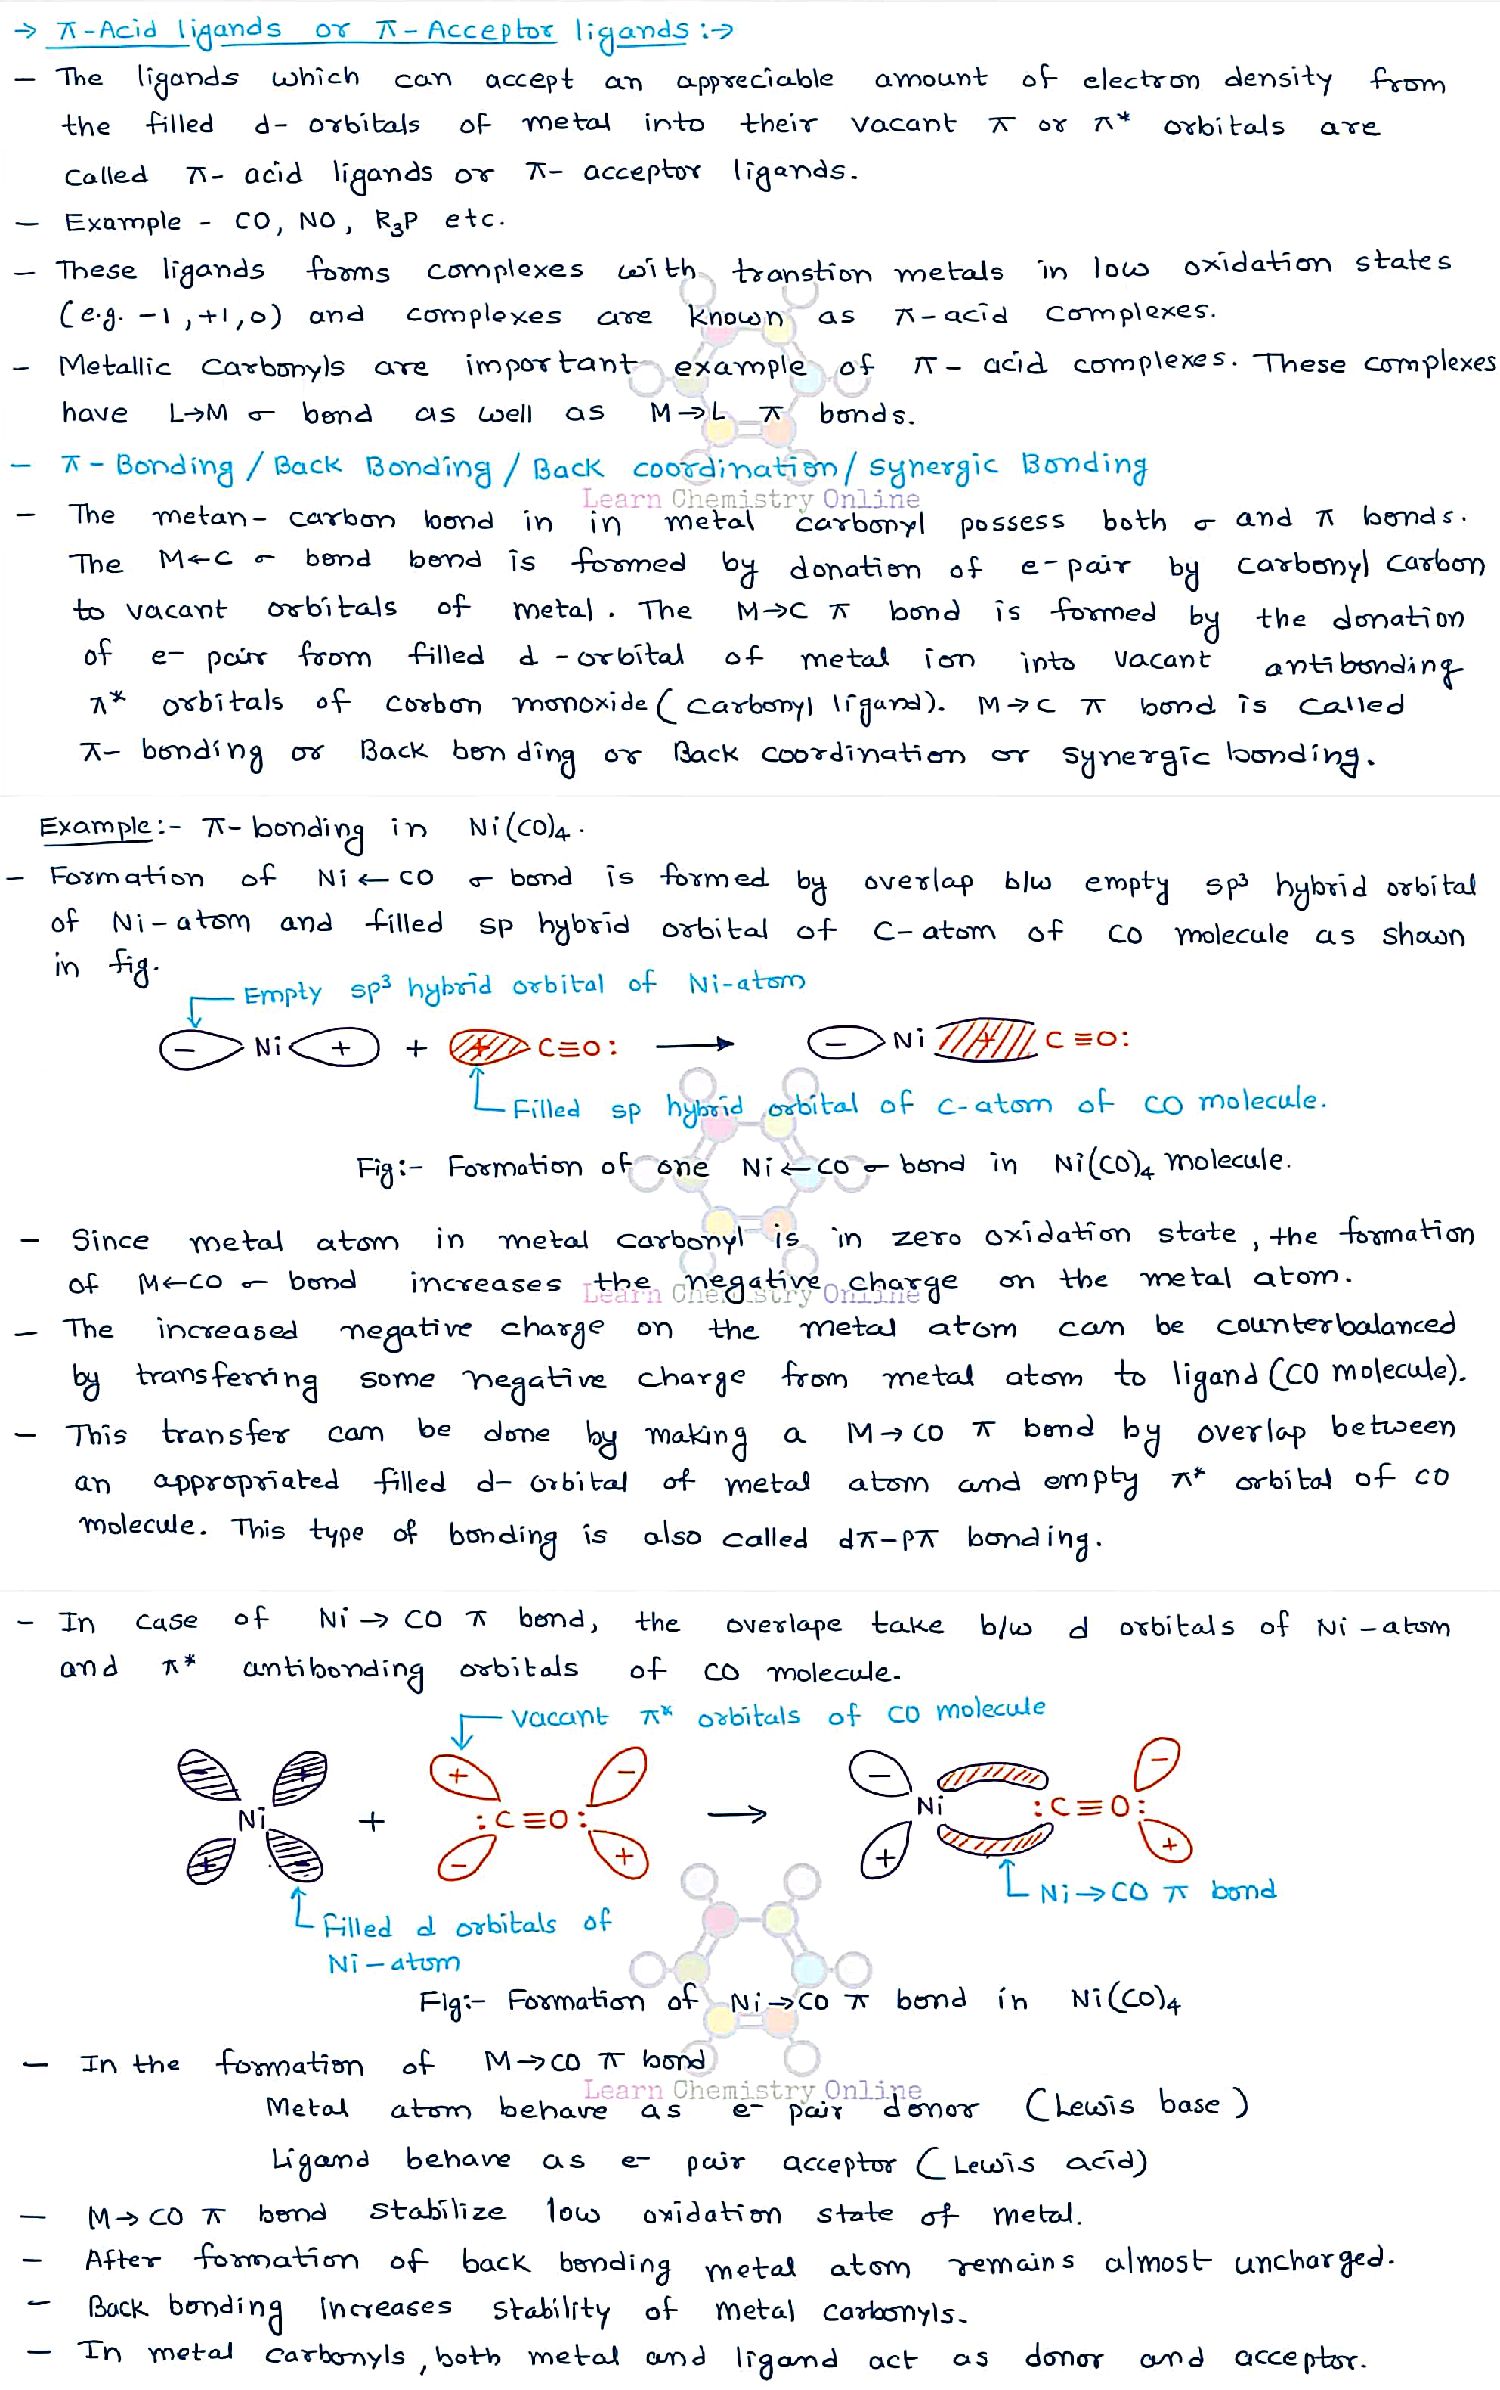 → π-Acid ligands or π-Acceptor ligands :→
- The ligands which can accept an appreciable amount of electron density from
the filled d- orbitals of metal into their vacant π or π* orbitals are
called π- acid ligands or π- acceptor ligands.
- Example - CO, NO, R₃P etc.
- These ligands forms complexes with transtion metals in low oxidation states
(e.g. -1, +1, 0) and complexes are known as π-acid complexes.
- Metallic carbonyls are important example of π- acid complexes. These complexes
have L→M σ bond as well as M→L π bonds.
- π-Bonding / Back Bonding / Back coordination / synergic Bonding
Learn Chemistry Online
- The metan- carbon bond in in metal carbonyl possess both σ and π bonds.
The M←C σ bond bond is formed by donation of e- pair by carbonyl carbon
to vacant orbitals of metal. The M→C π bond is formed by the donation
of e- pair from filled d-orbital of metal ion into vacant antibonding
π* orbitals of corbon monoxide (carbonyl ligand). M→C π bond is called
π- bonding or Back bonding or Back coordination or synergic bonding.
Example:- π- bonding in Ni(CO)₄.
- Formation of Ni←CO σ bond is formed by overlap b/w empty sp³ hybrid orbital
of Ni-atom and filled sp hybrid orbital of C-atom of CO molecule as shown
in fig.
Empty sp³ hybrid orbital of Ni-atom
- Ni + + + C≡O: → - Ni + C≡O:
Filled sp hybrid orbital of C-atom of CO molecule.
Fig:- Formation of one Ni←CO σ bond in Ni(CO)₄ molecule.
- Since metal atom in metal carbonyl is in zero oxidation state, the formation
of M←CO σ bond increases the negative charge on the metal atom.
Learn Chemistry Online
- The increased negative charge on the metal atom can be counterbalanced
by transferring some negative charge from metal atom to ligand (CO molecule).
- This transfer can be done by making a M→CO π bond by overlap between
an appropriated filled d- orbital of metal atom and empty π* orbital of CO
molecule. This type of bonding is also called dπ-pπ bonding.
- In case of Ni→CO π bond, the overlape take b/w d orbitals of Ni-atom
and π* antibonding orbitals of CO molecule.
Vacant π* orbitals of CO molecule
- + + - - -
Ni + :C≡O: → Ni :C≡O:
+ - - + + +
Ni→CO π bond
Filled d orbitals of
Ni-atom
Fig:- Formation of Ni→CO π bond in Ni(CO)₄
- In the formation of M→CO π bond
Learn Chemistry Online
Metal atom behave as e- pair donor (Lewis base)
Ligand behave as e- pair acceptor (Lewis acid)
- M→CO π bond stabilize low oxidation state of metal.
- After formation of back bonding metal atom remains almost uncharged.
- Back bonding increases stability of metal carbonyls.
- In metal carbonyls, both metal and ligand act as donor and acceptor.